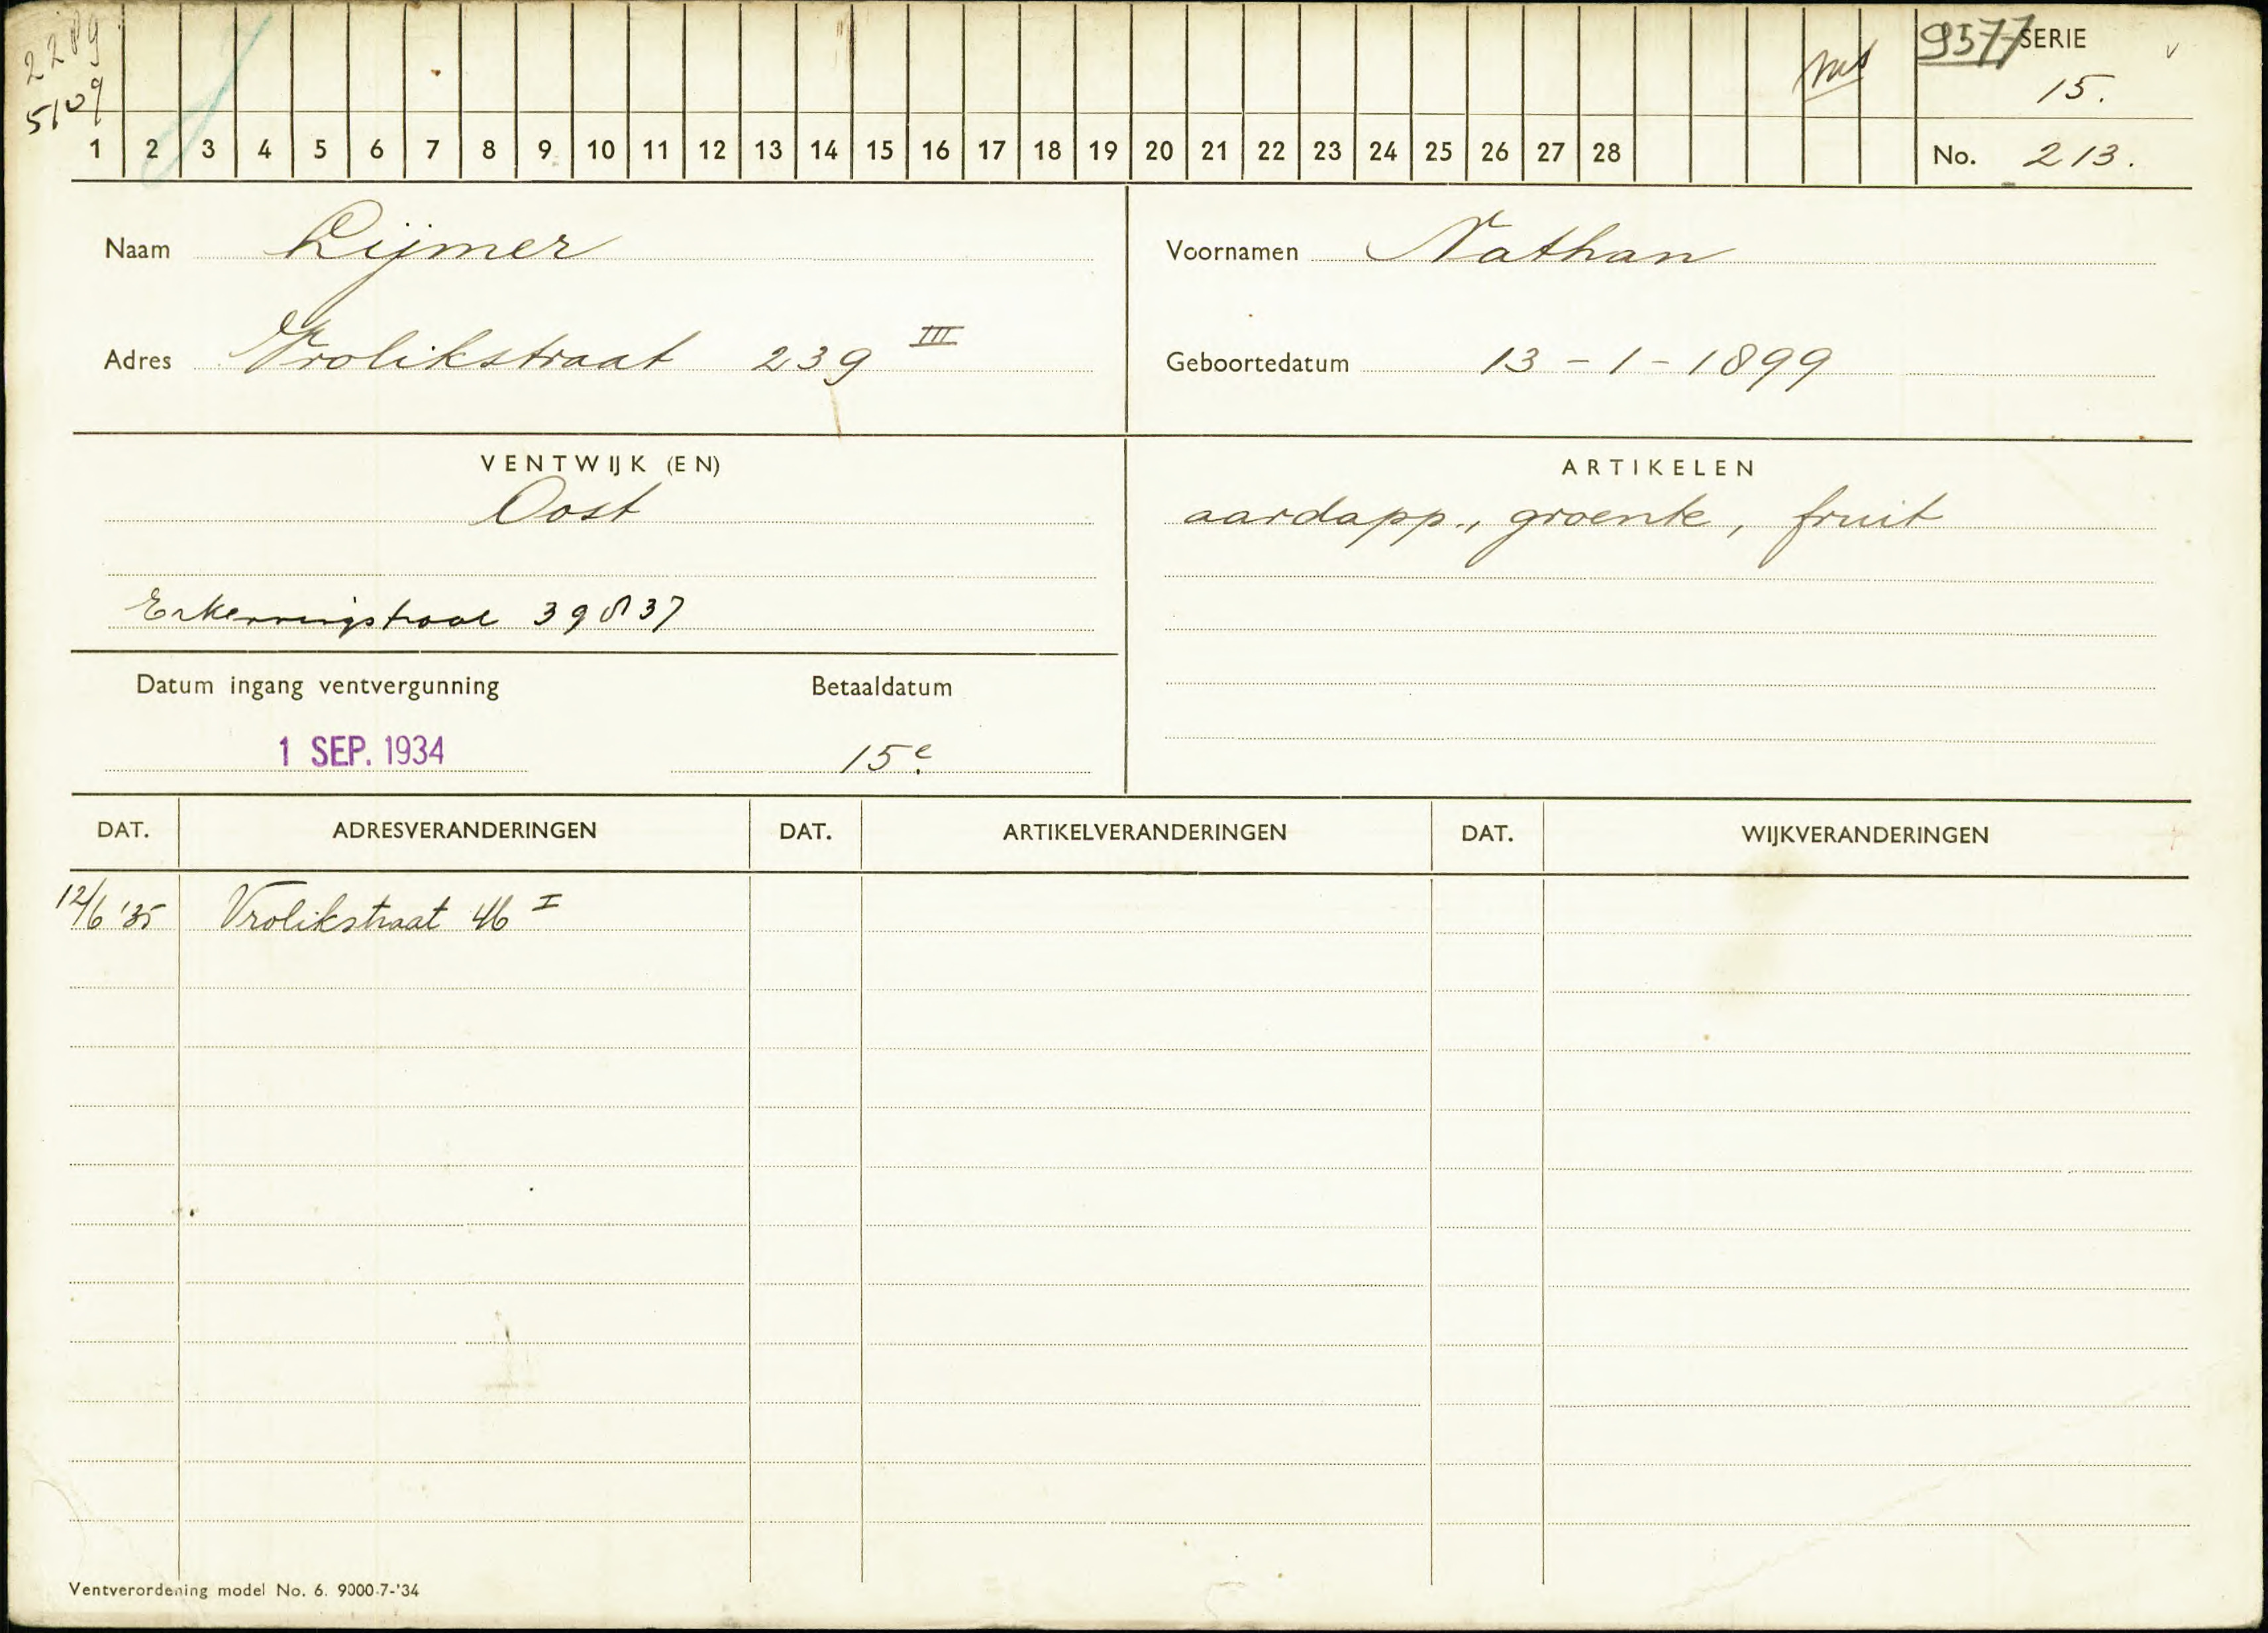 2289
5109
9577 SERIE
15.
1 2 3 4 5 6 7 8 9 10 11 12 13 14 15 16 17 18 19 20 21 22 23 24 25 26 27 28
No. 213.
Naam Lijmer
Voornamen Nathan
Adres Vrolikstraat 239 III
Geboortedatum 13-1-1899
VENTWIJK (EN)
Oost
39 37
ARTIKELEN
aardapp., groente, fruit
Datum ingang ventvergunning
1 SEP. 1934
Betaaldatum
15e
DAT. ADRESVERANDERINGEN DAT. ARTIKELVERANDERINGEN DAT. WIJKVERANDERINGEN
12/6 '35 Vrolikstraat 46 I
Ventverordening model No. 6. 9000-7-'34